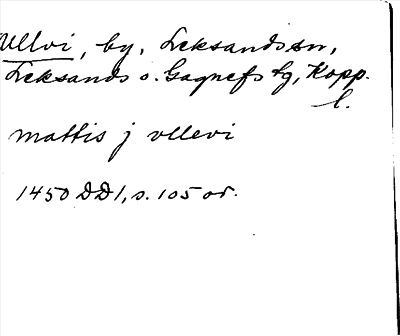 Ullvi, by, Leksands sn,
Leksands o. Gagnefs tg, Kopp.
l.
mattis j vllevi
1450 DD 1, s. 105 or.